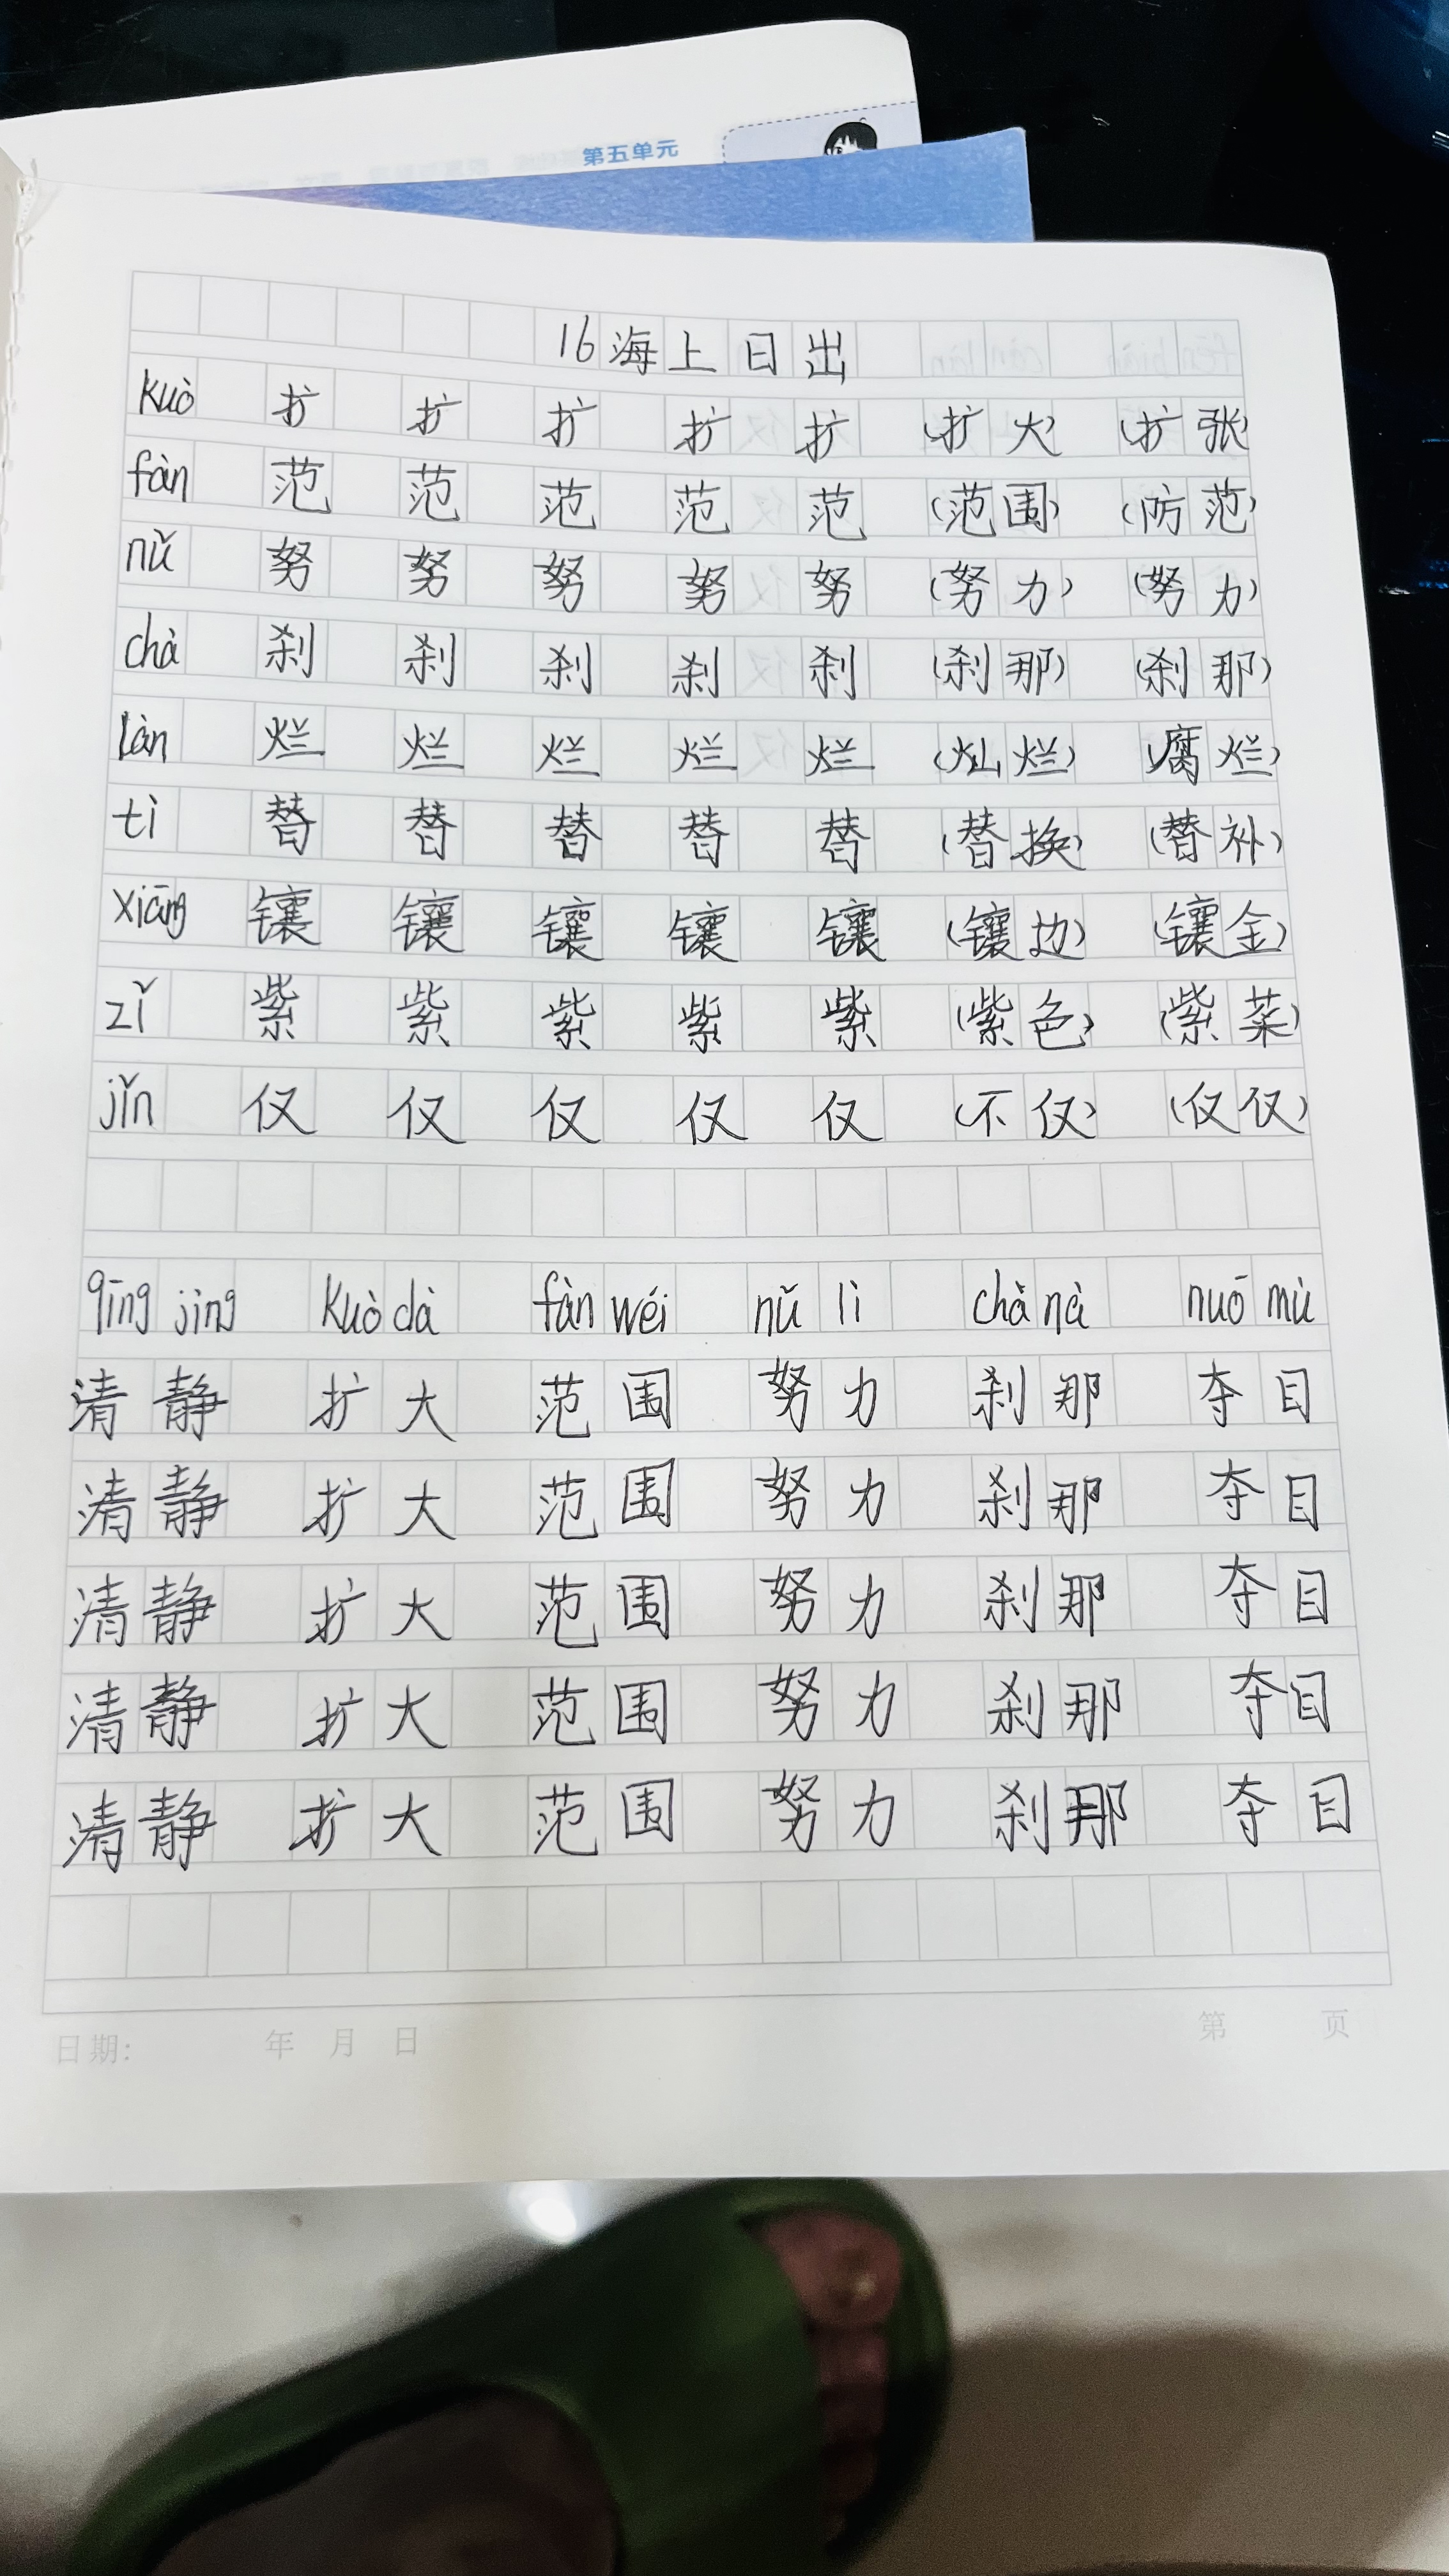 第五单元
16海上日出
kuò 扩 扩 扩 扩 扩 (扩大) (扩张)
fàn 范 范 范 范 范 (范围) (防范)
nǔ 努 努 努 努 努 (努力) (努力)
chà 刹 刹 刹 刹 刹 (刹那) (刹那)
làn 烂 烂 烂 烂 烂 (灿烂) (腐烂)
tì 替 替 替 替 替 (替换) (替补)
xiāng 镶 镶 镶 镶 镶 (镶边) (镶金)
zǐ 紫 紫 紫 紫 紫 (紫色) (紫菜)
jǐn 仅 仅 仅 仅 仅 (不仅) (仅仅)
qīng jìng kuò dà fàn wéi nǔ lì chà nà nuō mù
清静 扩大 范围 努力 刹那 夺目
清静 扩大 范围 努力 刹那 夺目
清静 扩大 范围 努力 刹那 夺目
清静 扩大 范围 努力 刹那 夺目
清静 扩大 范围 努力 刹那 夺目
日期: 年 月 日 第 页